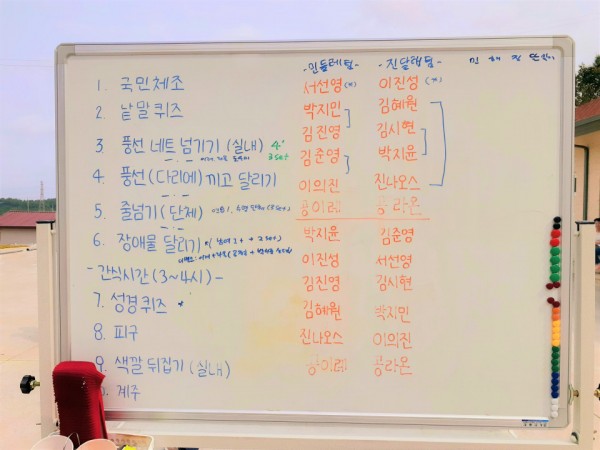 -민들레팀- -진달래팀-
1. 국민체조 서선영(*) 이진성(*)
2. 낱말퀴즈 박지민 김혜원
김진영 김시현
3. 풍선 네트 넘기기 (실내) 4' 3set
김준영 박지윤
4. 풍선(다리에) 끼고 달리기 이의진 진나오스
5. 줄넘기 (단체) 콩이레 콩라온
6. 장애물 달리기 박지윤 김준영
이진성 서선영
-간식시간(3~4시)- 김진영 김시현
7. 성경퀴즈 * 김혜원 박지민
8. 피구 진나오스 이의진
9. 색깔 뒤집기 (실내) 콩이레 콩라온
계주